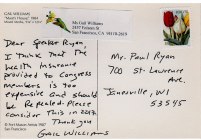 GAIL WILLIAMS
"March Flowers," 1984
Ms Gail Williams
San Francisco, CA 94110-2615
Dear Speaker Ryan
I think that the
health insurance
provided to Congress
members is too
expensive and should
be Repealed. Please
consider this in 2017.
Thank you
Gail Williams
Mr. Paul Ryan
700 St. Lawrence
Ave.
Janesville, WI
53545
San Francisco, California